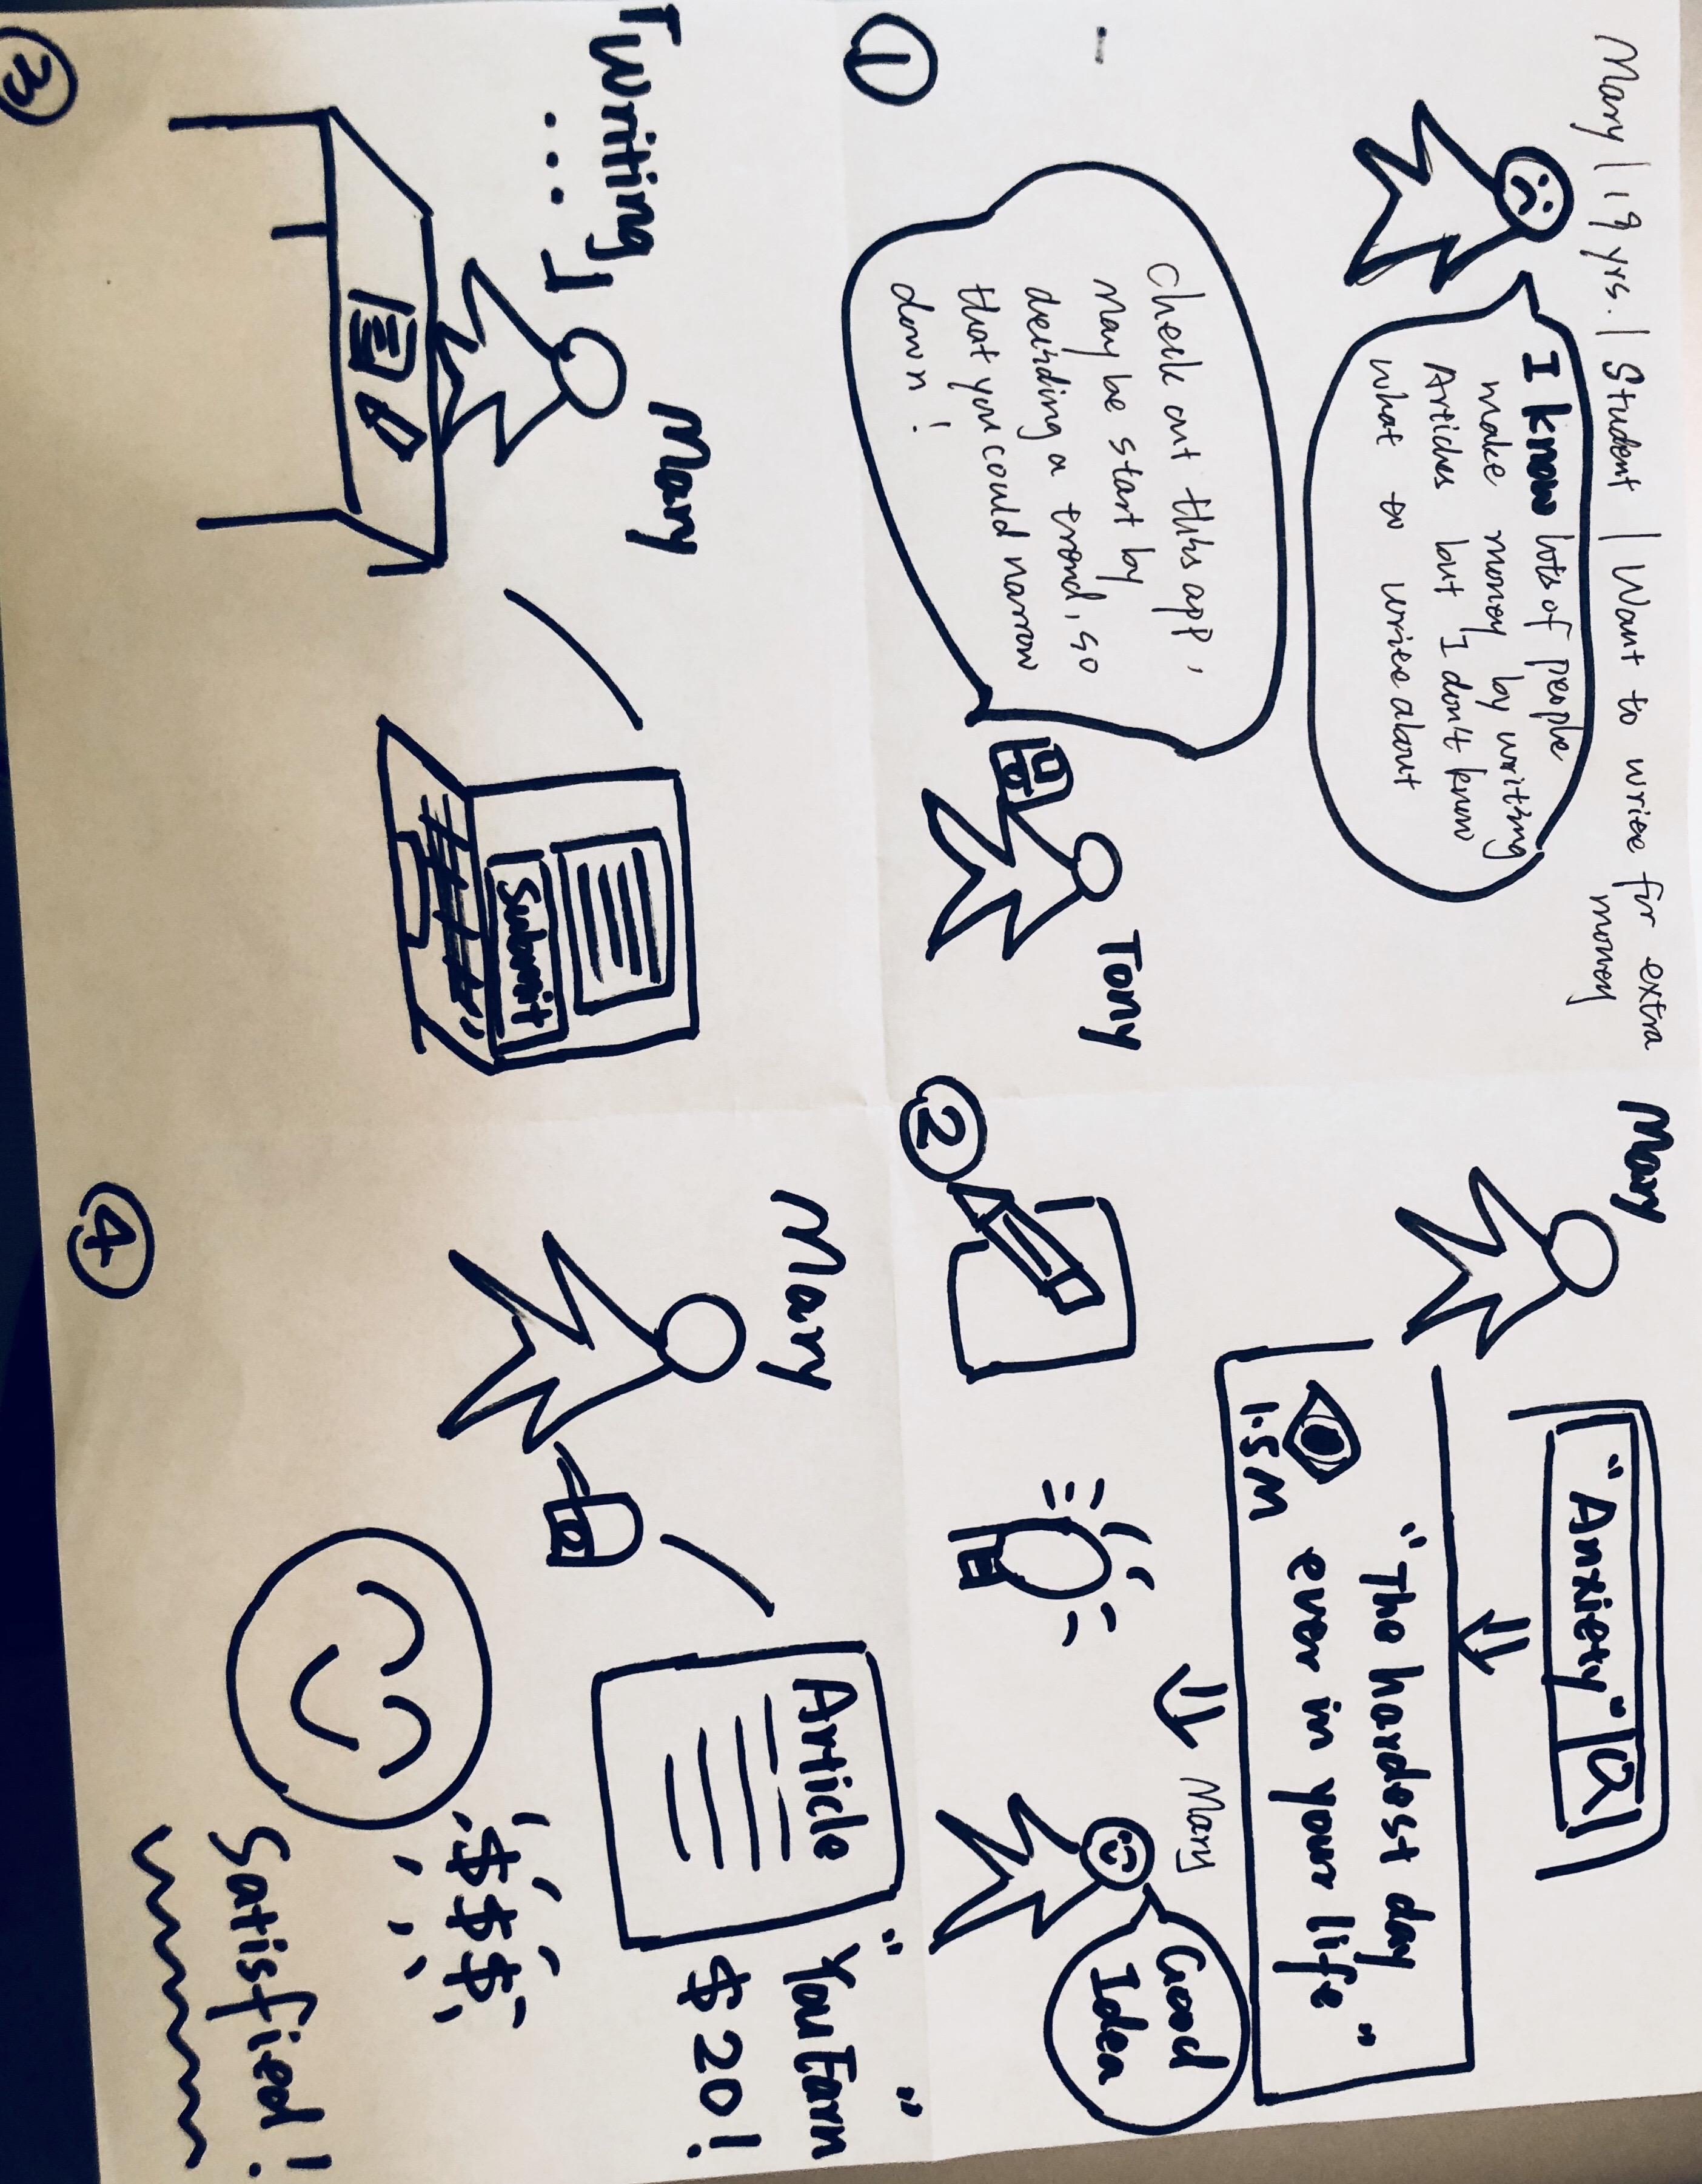 Mary | 19 yrs. | Student | Want to write for extra
money
I know lots of people
make money by writing
Articles but I don't know
what to write about
check out this app,
may be start by
deciding a trend, so
that you could narrow
down!
Tony
1
Mary
"Anxiety"
"The hardest day
ever in your life"
1.5M
Mary
Good
Idea
2
Mary
「Writing
...」
Submit
3
Mary
Article
" "
You Earn
$20!
$$$
Satisfied!
4